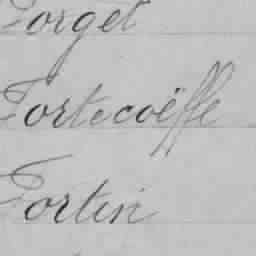 Forget
Fortecoëffe
Fortin